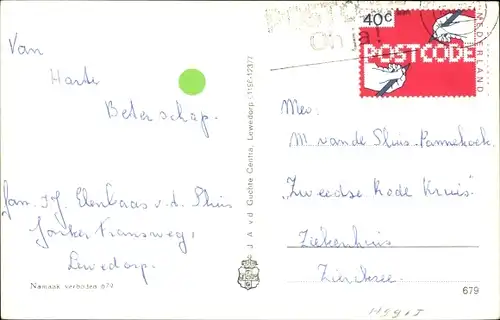 Van
Harte
Beterschap.
Jan. Tj. Elenbaas v.d. Sluis
Jonker Fransweg,
Lewedorp.
Namaak verboden 679
J A v d Guchte Centra, Lewedorp
POSTCODE
Oh ja!
40c
POSTCODE
NEDERLAND
Mev:
M van de Sluis-Pannekoek.
"Zweedse Rode Kruis"
Ziekenhuis
Zierikzee.
679